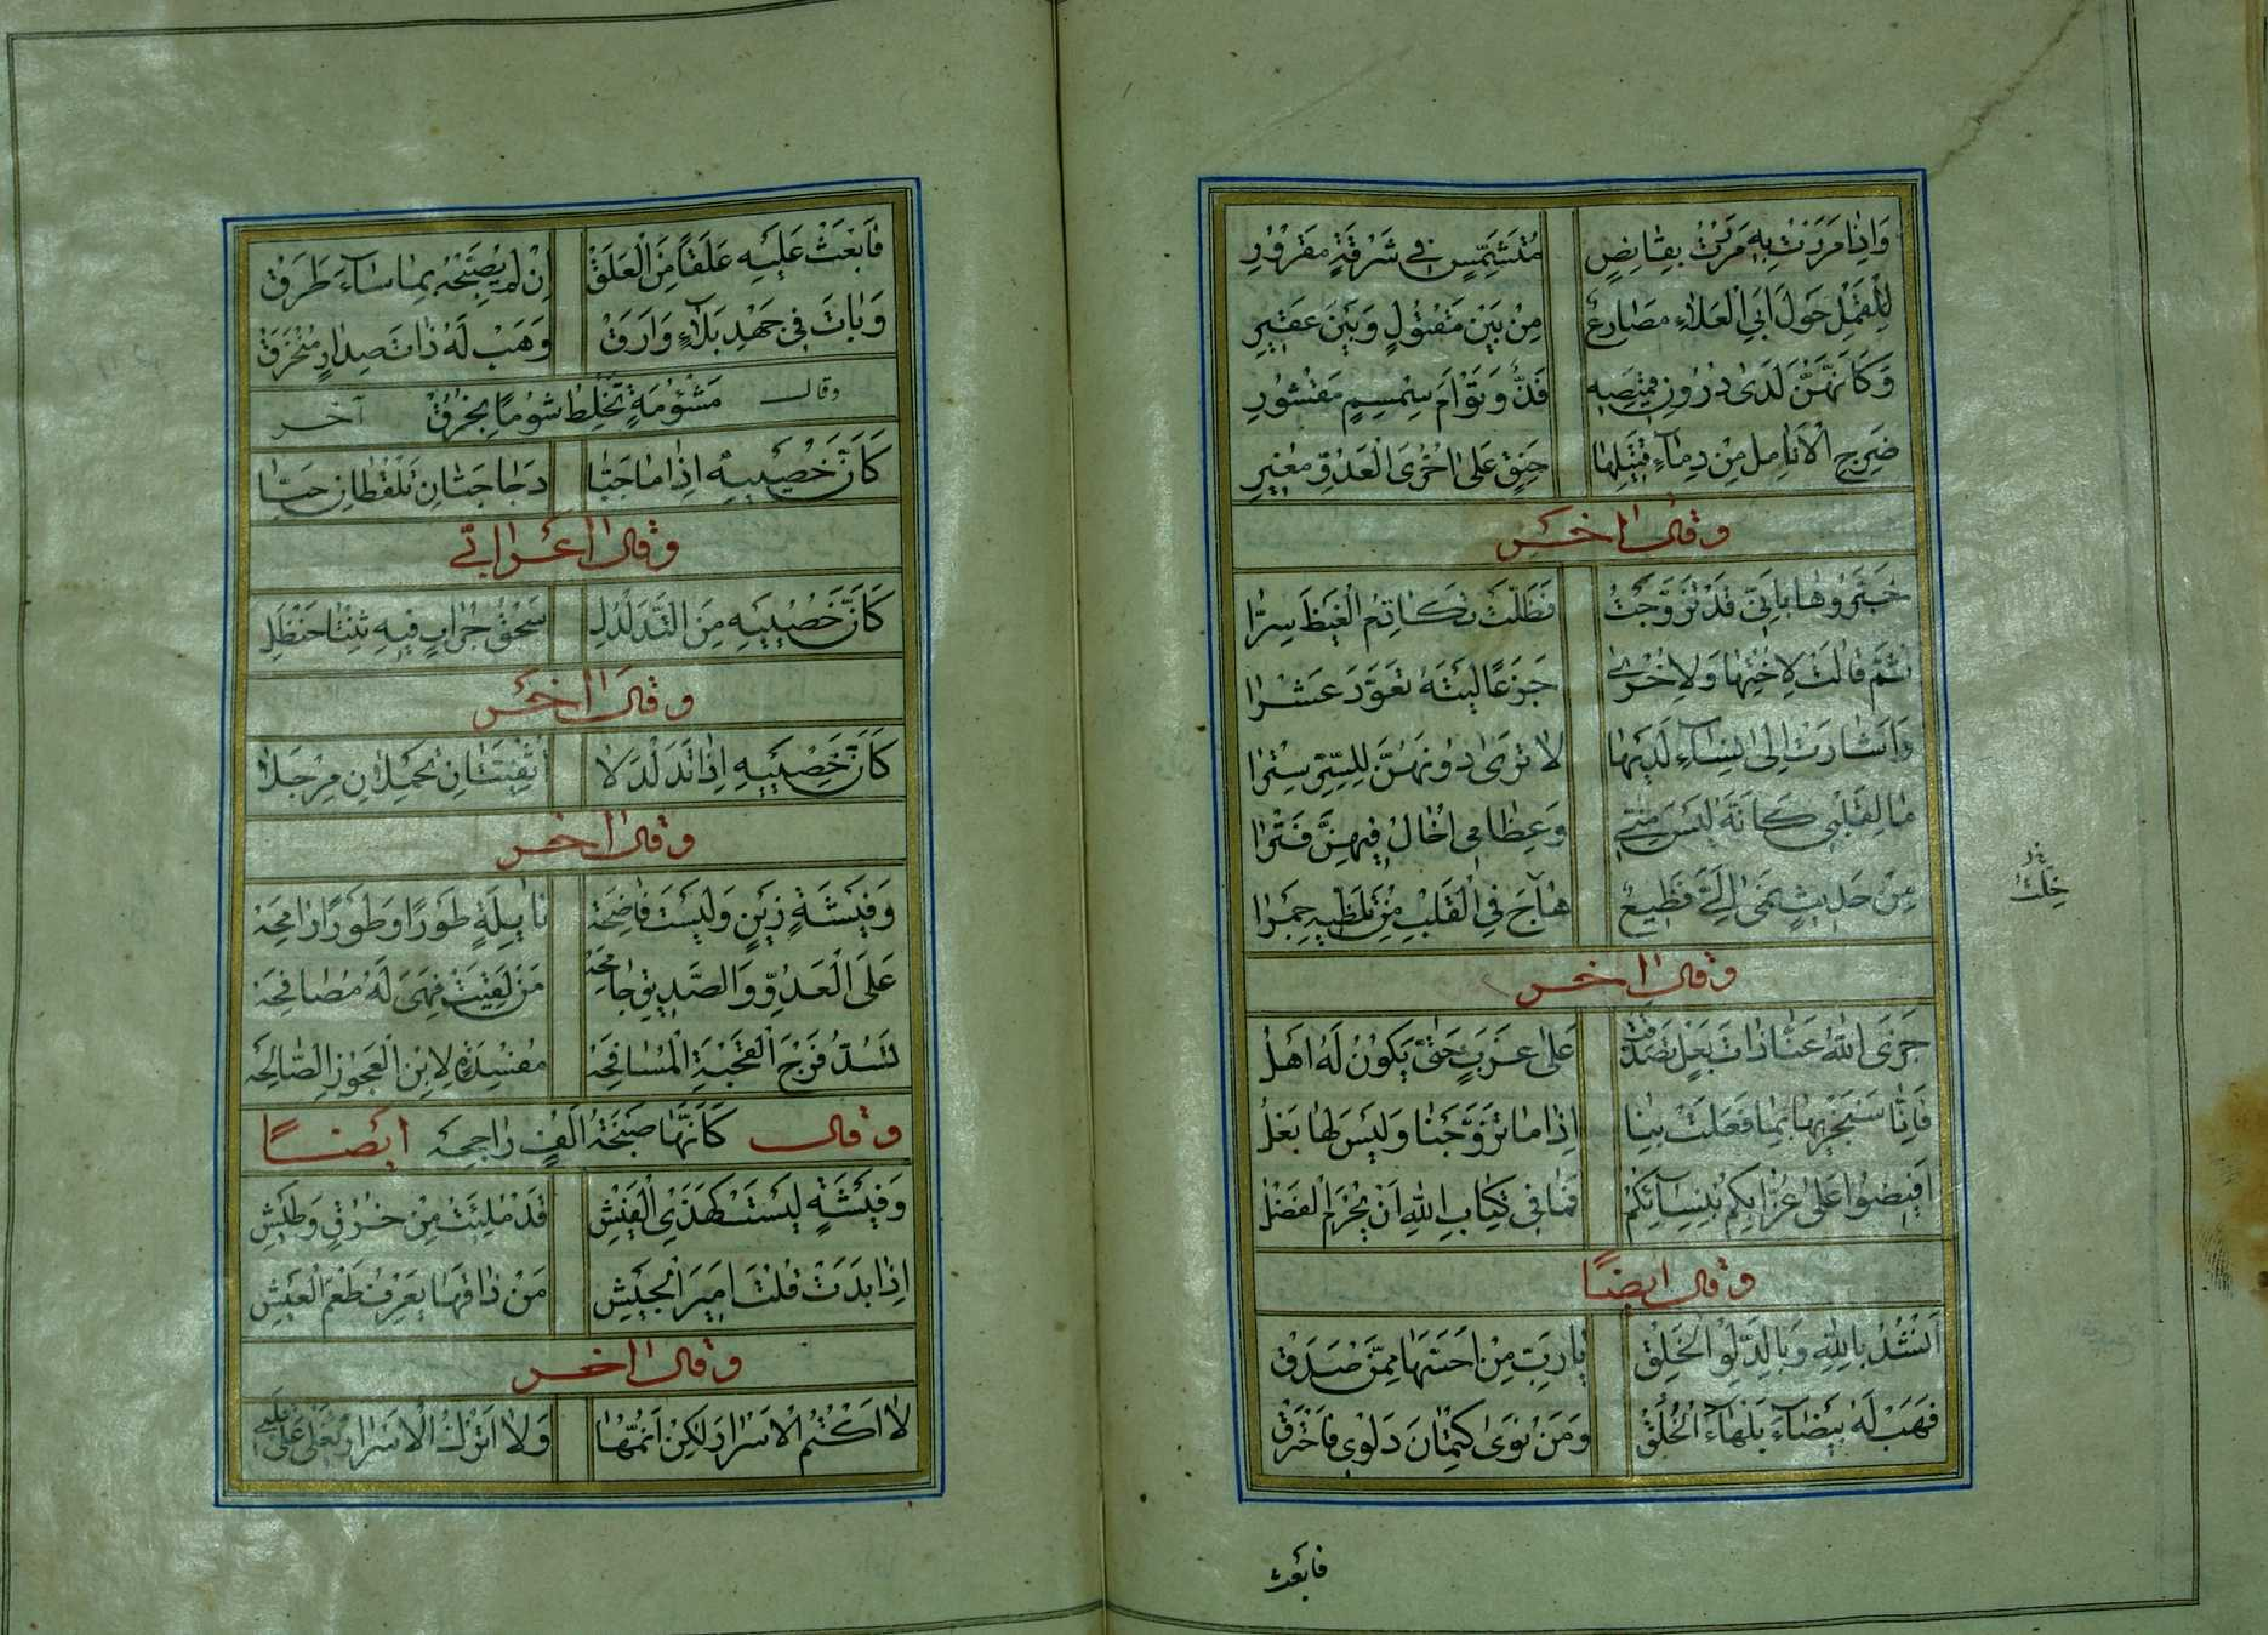 وَاِذَا مَرَرْتَ بِهِ مَرَرْتَ بِقَانِصٍ مُتَشَمِّسٍ فِي شَرْقَةٍ مَقْرُورِ
لِلْقَمْلِ حَوْلَ اَبِي الْعَلَاءِ مَصَارِعٌ مِنْ بَيْنِ مَقْتُولٍ وَبَيْنَ عَقِيرِ
وَكَاَنَّهُنَّ لَدَى دُرُوزِ قَمِيصِهِ فَذٌّ وَتَوْأَمُ سِمْسِمٍ مَقْشُورِ
ضَرِجِ الْاَنَامِلِ مِنْ دِمَاءِ قَتِيلِهَا حَنِقٍ عَلَى اُخْرَى الْعَدُوِّ مُغِيرِ
وقال اخر
خَبَّرُوهَا بِاَنَّنِي قَدْ تَزَوَّجْتُ فَظَلَّتْ تُكَاتِمُ الْغَيْظَ سِرًّا
ثُمَّ قَالَتْ لِاُخْتِهَا وَلِاُخْرَى جَزَعًا لَيْتَهُ تَزَوَّدَ عَشْرَا
وَاَشَارَتْ اِلَى نِسَاءٍ لَدَيْهَا لَا تَرَى دُونَهُنَّ لِلسِّتْرِ سِتْرَا
مَا لِقَلْبِي كَاَنَّهُ لَيْسَ مِنِّي وَعِظَامِي اَخَالُ فِيهِنَّ فَتْرَا
مِنْ حَدِيثٍ نَمَى اِلَيَّ فَظِيعٌ هَاجَ فِي الْقَلْبِ مِنْ تَلَظِّيهِ جَمْرَا
خِلْتُ
وقال اخر
جَزَى اللّٰهُ عَنَّا ذَاتَ بَعْلٍ تَصَدَّقَتْ عَلَى عَزَبٍ حَتَّى يَكُونَ لَهُ اَهْلُ
فَاِنَّا سَنَجْزِيهَا بِمَا فَعَلَتْ بِنَا اِذَا مَا تَزَوَّجْنَا وَلَيْسَ لَهَا بَعْلُ
اَفِيضُوا عَلَى عُزَّابِكُمْ بِنِسَائِكُمْ فَمَا فِي كِتَابِ اللّٰهِ اَنْ يُحْرَمَ الْفَضْلُ
وقال ايضًا
اَنْشُدُ بِاللّٰهِ وَبِالدَّلْوِ الْخَلَقْ يَا رَبِّ مِنْ اَحَسَّهَا مِمَّنْ صَدَقْ
فَهَبْ لَهُ بَيْضَاءَ بَلْهَاءَ الْخُلُقْ وَمَنْ نَوَى كِتْمَانَ دَلْوِي فَاحْتَرَقْ
فابعث
فَابْعَثْ عَلَيْهِ عَلَقًا مِنَ الْعَلَقْ اِنْ لَمْ يُصَبِّحْهُ بِمَا سَاءَ طَرَقْ
وَبَاتَ فِي جَهْدِ بَلَاءٍ وَاَرَقْ وَهَبْ لَهُ ذَاتَ صِدَارٍ مُنْخَرِقْ
وقال مَشْؤُمَةٍ تَخْلِطُ شُومًا بِخُرُقْ آخر
كَاَنَّ خُصْيَيْهِ اِذَا مَا جَبَّا دَجَاجَتَانِ تَلْقُطَانِ حَبَّا
وقال اعرابي
كَاَنَّ خُصْيَيْهِ مِنَ التَّدَلْدُلِ سَحْقُ جِرَابٍ فِيهِ ثِنْتَا حَنْظَلِ
وقال اخر
كَاَنَّ خُصْيَيْهِ اِذَا تَدَلْدَلَا اُثْفِيَّتَانِ تَحْمِلَانِ مِرْجَلَا
وقال اخر
وَفَيْشَةٍ زَيْنٍ وَلَيْسَتْ فَاضِحَهْ نَابِلَةٍ طَوْرًا وَطَوْرًا رَامِحَهْ
عَلَى الْعَدُوِّ وَالصَّدِيقِ جَامِحَهْ مَنْ لَقِيَتْ فَهْيَ لَهُ مُصَافِحَهْ
تَسُدُّ فَرْجَ الْقَحْبَةِ الْمُسَافِحَهْ مُفْسِدَةٍ لِابْنِ الْعَجُوزِ الصَّالِحَهْ
وقال كَاَنَّهَا صَنْجَةُ اَلْفٍ رَاجِحَهْ ايضًا
وَفَيْشَةٍ لَيْسَتْ كَهَذِي الْفَيْشِ قَدْ مُلِئَتْ مِنْ خُرُقٍ وَطَيْشِ
اِذَا بَدَتْ قُلْتَ اَمِيرُ الْجَيْشِ مَنْ ذَاقَهَا يَعْرِفُ طَعْمَ الْعَيْشِ
وقال اخر
لَا اَكْتُمُ الْاَسْرَارَ لَكِنْ اَنُمُّهَا وَلَا اَتْرُكُ الْاَسْرَارَ تَغْلِي عَلَى قَلْبِي